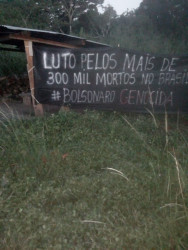 LUTO PELOS MAIS DE
300 MIL MORTOS NO BRASIL
#BOLSONARO GENOCIDA